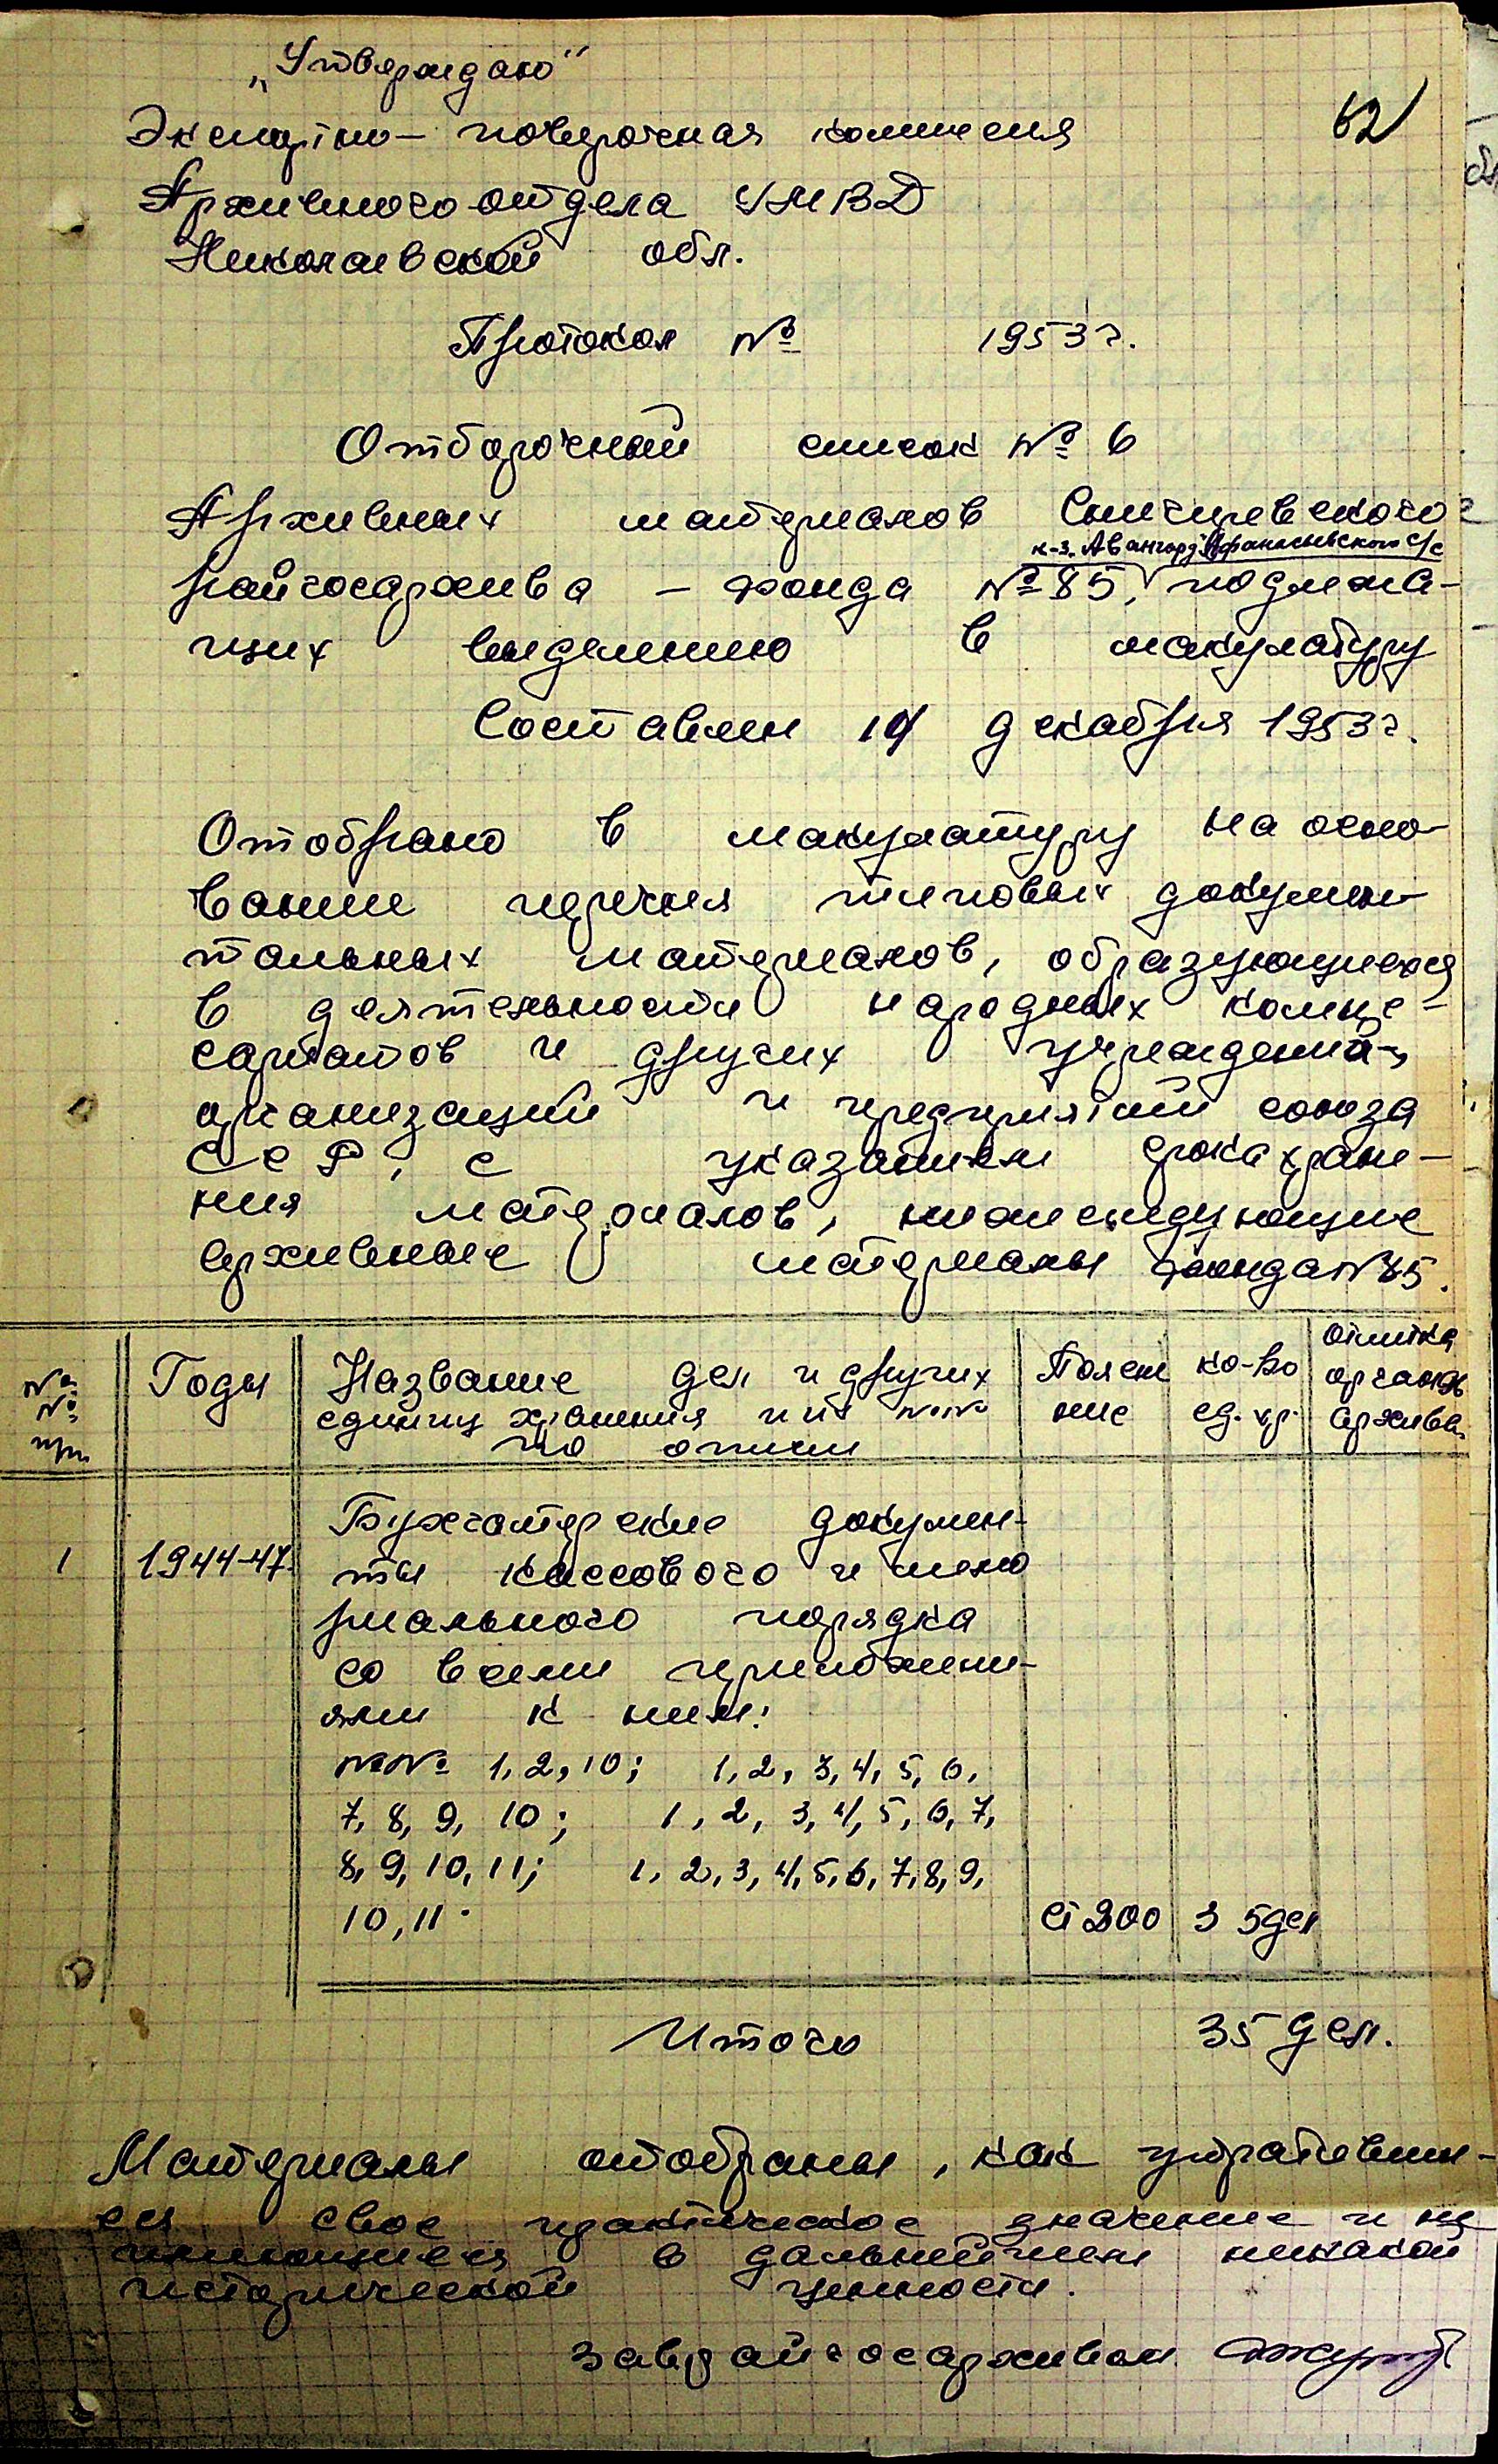 „Утверждаю"
62
Экспертно- поверочная комиссия
Архивного отдела УМВД
Николаевской обл.
Протокол № 1953 г.
Отборочный список № 6
Архивных материалов Снигиревского
к-з. Авангард Афанасьевского с/с
райгосархива – фонда № 85, подлежа-
щих выделению в макулатуру
Составлен 14 декабря 1953 г.
Отобрано в макулатуру на осно-
вании перечня типовых докумен-
тальных материалов, образующихся
в деятельности народных комис-
сариатов и других учреждений,
организаций и предприятий союза
ССР, с указанием срока хране-
ния материалов, нижеследующие
архивные материалы фонда № 85.
№№ пп Годы Название дел и других единиц хранения и их №№ по описи Поясн ние ко-во ед. хр. отметка органов архива
Бухгалтерские докумен-
1 1944-47. ты кассового и мемо
риального порядка
со всеми приложени-
ями к ним:
№№ 1, 2, 10; 1, 2, 3, 4, 5, 6,
7, 8, 9, 10; 1, 2, 3, 4, 5, 6, 7,
8, 9, 10, 11; 1, 2, 3, 4, 5, 6, 7, 8, 9,
10, 11. ст 200 35 дел
Итого 35 дел.
Материалы отобраны, как утратившие-
ся свое практическое значение и не
имеющиеся в дальнейшем никакой
исторической ценности.
Завгосрайгосархивом